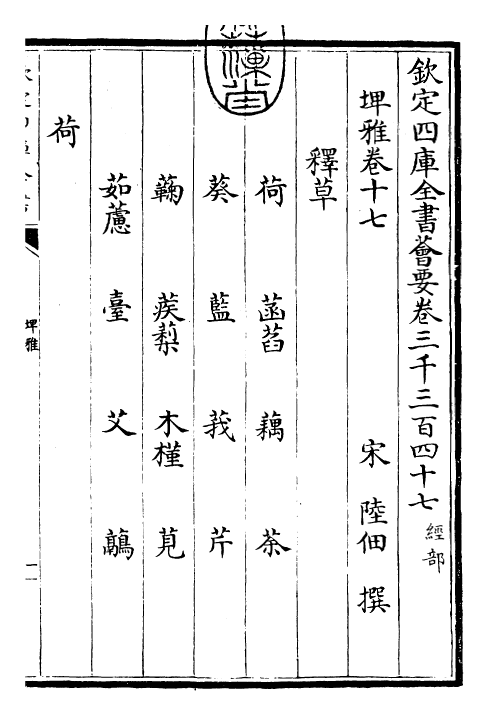 欽定四庫全書薈要卷三千三百四十七 經部
埤雅卷十七 宋 陸佃 撰
釋草
荷 菡萏 藕 荼
葵 藍 莪 芹
蘜 蒺䔧 木槿 莧
茹藘 臺 艾 鷊
荷
埤雅
一